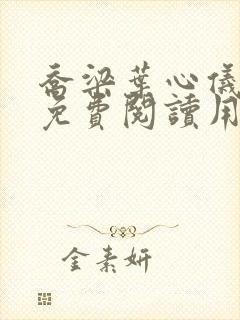 喬梁葉心儀
免費閱讀用
金素妍